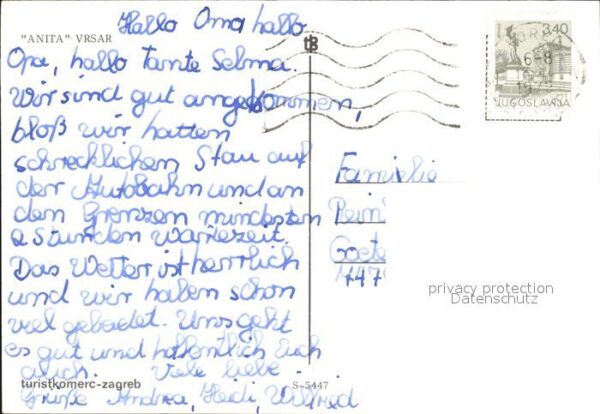 Hallo Oma hallo
"ANITA" VRSAR
Opa, hallo Tante Selma.
Wir sind gut angekommen,
bloß wir hatten
schrecklichen Stau auf
der Autobahn und an
den Grenzen mindesten
2 Stunden Wartezeit.
Das Wetter ist herrlich
und wir haben schon
viel gebadet. Uns geht
es gut und hoffentlich Euch
auch. Viele liebe
Grüße Andrea, Heidi, Wilfried
turistkomerc-zagreb
S-5447
tB
3,40
6-8
JUGOSLAVIJA
Familie
privacy protection
Datenschutz